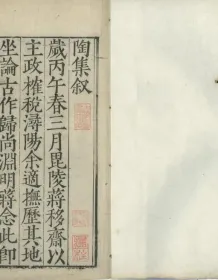 陶集叙
歲丙午春三月毘陵蔣移齋以
主政榷税潯陽余適撫歷其地
坐論古作歸尚淵明蔣念此卽